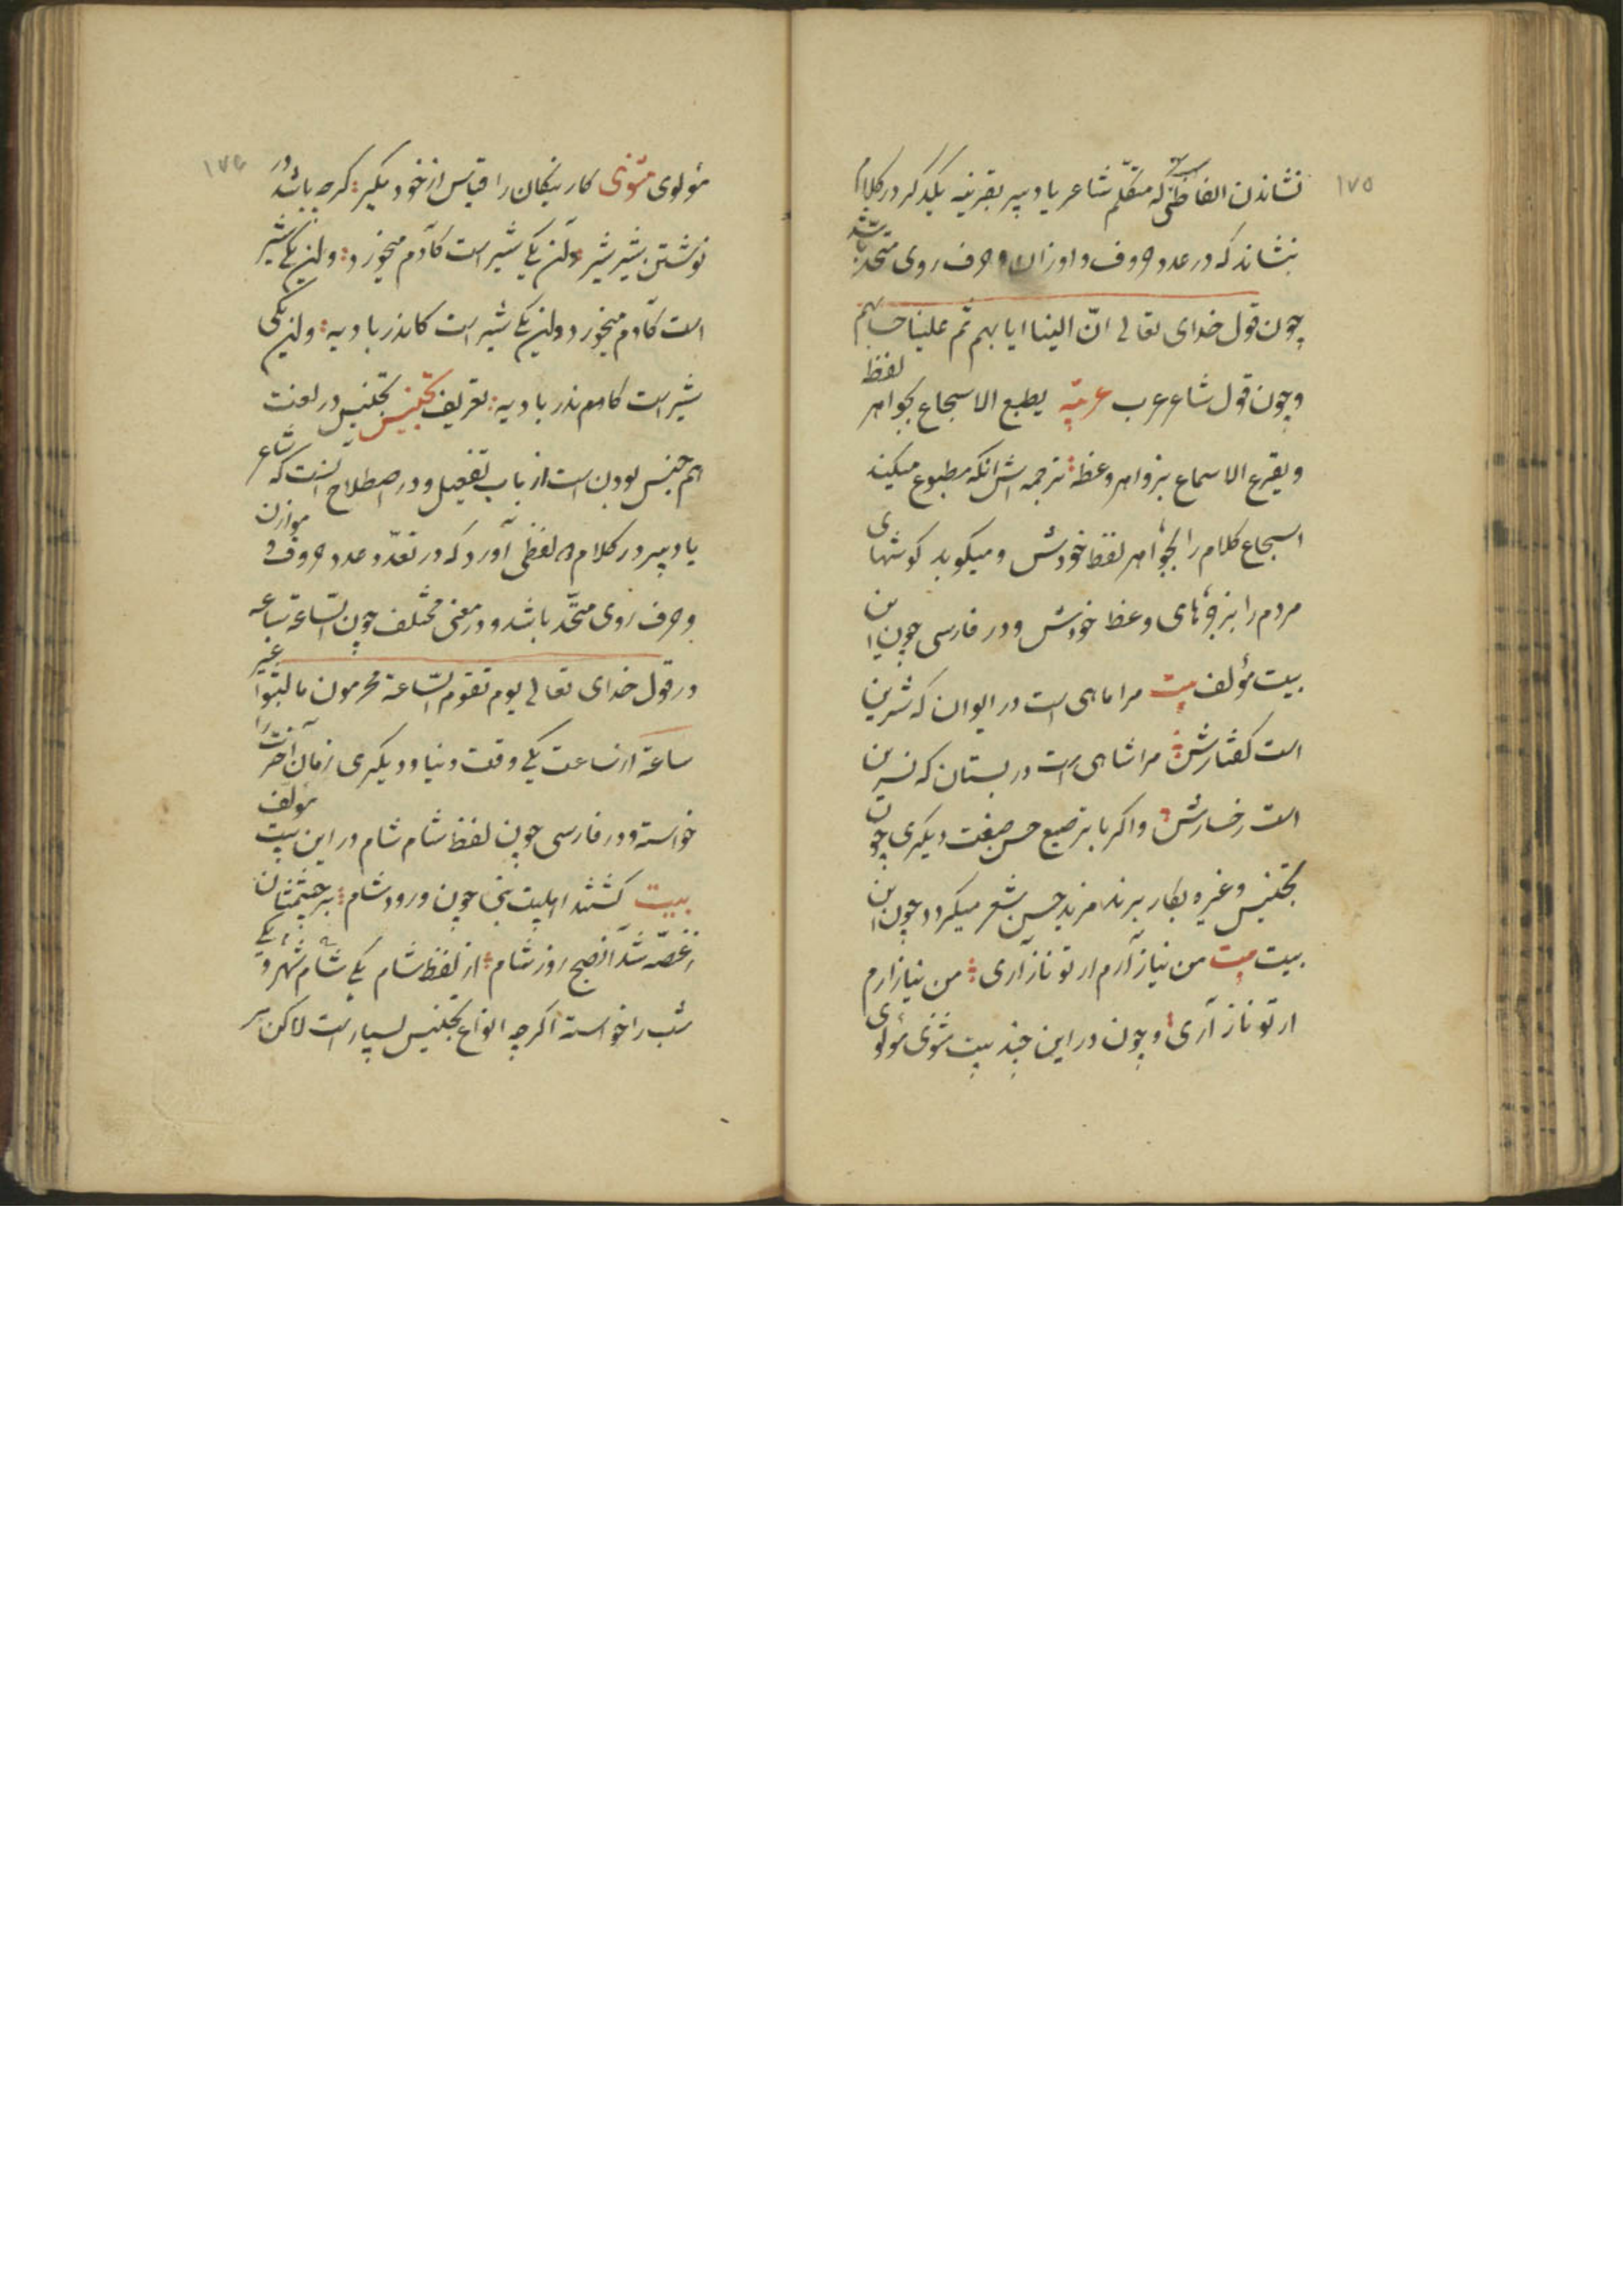 ١٧٥
نشاندن الفاظی که متکلّم شاعر یا دبیر بقرینه یکدیگر در کلام
بنشاند که در عدد حروف و اوزان و حرف روی متحد باشد
چون قول خدای تعالی انّ الینا ایابهم ثم علینا حسابهم
و چون قول شاعر عرب عربیّه یطبع الاسجاع بجواهر لفظ
و یقرع الاسماع بزواهر وعظ ترجمه اش انکه مطبوع میکند
اسجاع کلام را بجواهر لفظ خودش و میکوبد کوشهای
مردم را بزجرهای وعظ خودش و در فارسی چون این
بیت مؤلف بیت مرا ماهی است در ایوان که شیرین
است کفتارش مرا شاهی است در بستان که نسرین
است رخسارش و اکر با ترصیع حسن صنعت دیکری چون
تجنیس و غیره بکار برند مزید حسن شعر میکردد چون این
بیت بیت من نیاز آرم ار تو ناز آری من نیازارم
ار تو ناز آری و چون در این چند بیت مثنوی مولوی
١٧٦
مولوی مثنوی کار نیکان را قیاس از خود مکیر کرچه باشد در
نوشتن شیر شیر و آن یکی شیر است کآدم میخورد و این یکی شیر
است کآدم میخورد و این یکی شیر است کاندر بادیه و این یکی
شیر است کاندر بادیه تعریف تجنیس تجنیس در لغت
هم جنس بودن است از باب تفعیل و در اصطلاح آنست که شاعر
یا دبیر در کلام لفظی آورد که در تعدّد عدد حروف و موازن
و حرف روی متّحد باشد و در معنی مختلف چون السّاعة ساعه
در قول خدای تعالی یوم تقوم السّاعة مجرمون ما لبثوا غیر
ساعة از ساعت یکی وقت دنیا و دیکری زمان آخرت را
خواسته و در فارسی چون لفظ شام شام در این بیت مؤلف
بیت کشتند اهلبیت نبی چون ورود شام بر چشمشان
ز غصّه شد آن صبح روز شام از لفظ شام یکی شام شهر و یکی
شب را خواسته اکرچه انواع تجنیس بسیار است لاکن